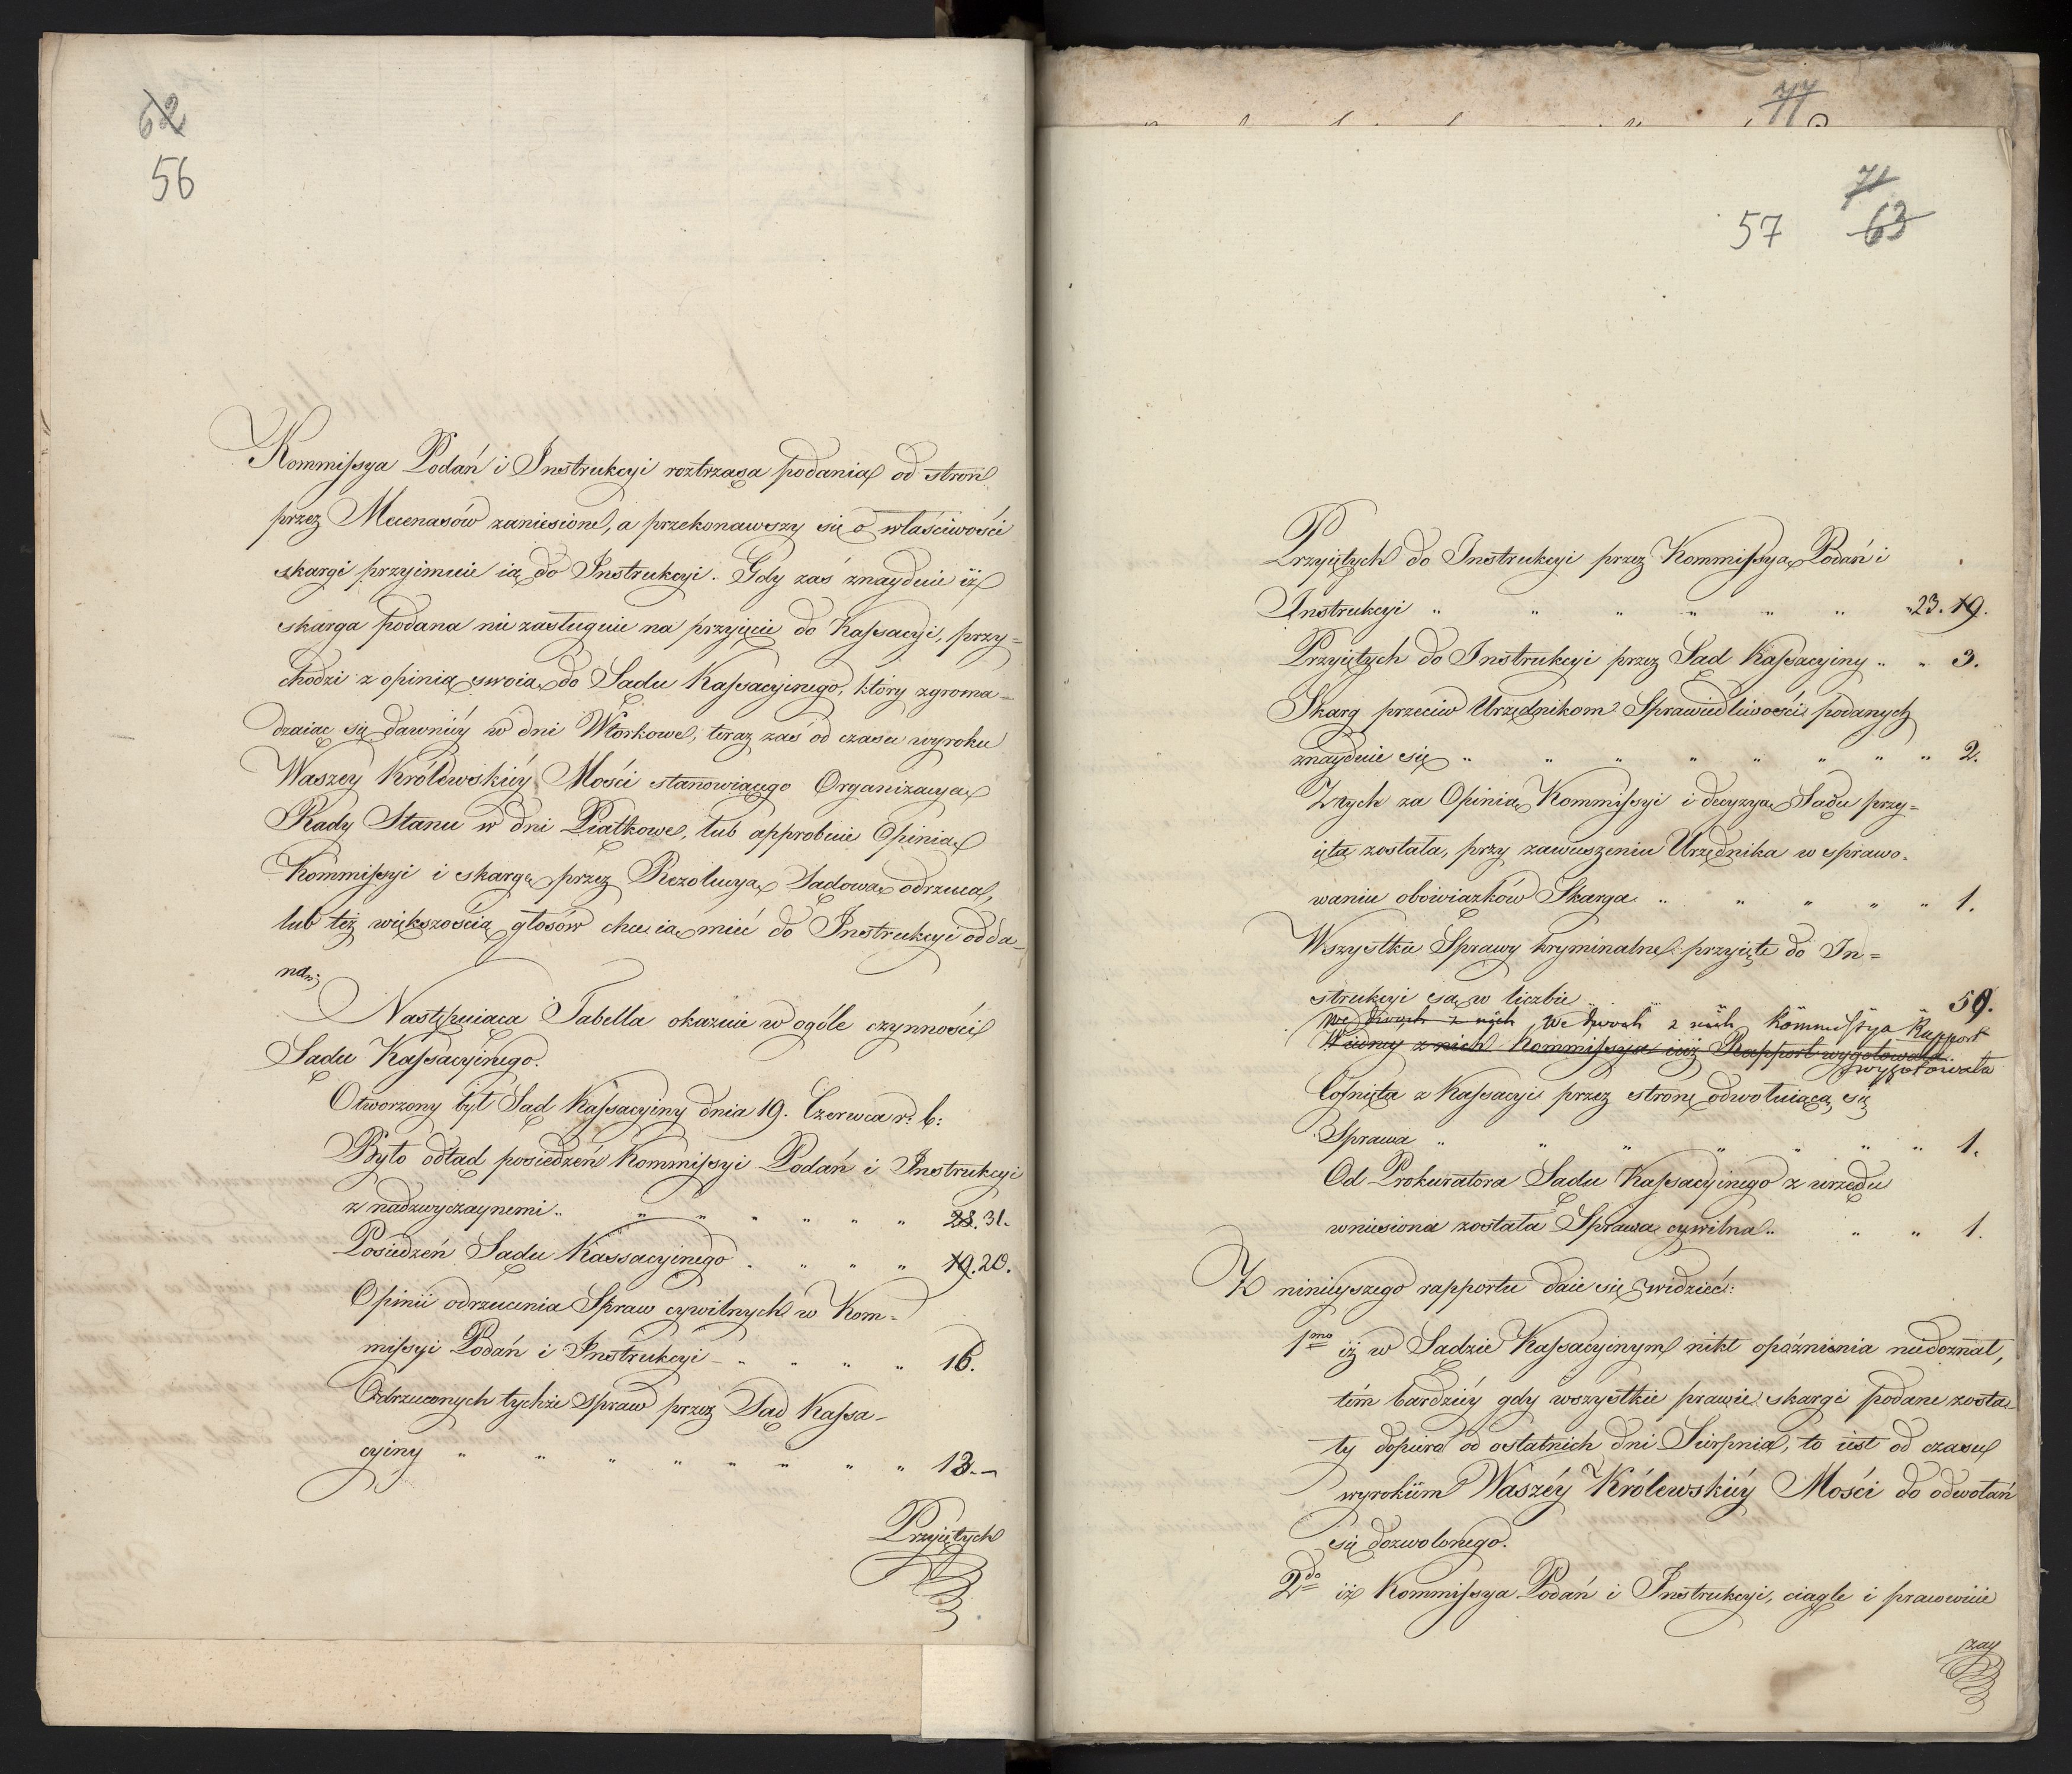 62
56
Kommissya Podań i Instrukcyi roztrząsa podania od stron
przez Mecenasów zaniesione, a przekonawszy się o właściwości
skargi przyimuie ią do Instrukcyi. Gdy zaś znayduie iż
skarga podana nie zasługuie na przyięcie do Kassacyi, przy=
chodzi z opinią swoią do Sądu Kassacyinego, który zgroma=
dzaiąc się dawniéy w dni Wtorkowe, teraz zaś od czasu wyroku
Waszéy Królewskiéy Mości stanowiącego Organizacyą
Rady Stanu w dni Piątkowe, lub approbuie Opinią
Kommissyi i skargę przez Rezolucyą Sądową odrzuca,
lub też większością głosów chce ią mieć do Instrukcyi odda=
ną;
Następuiąca Tabella okazuie w ogóle czynności
Sądu Kassacyinego.
Otworzony był Sąd Kassacyiny dnia 19. Czerwca r. b:
Było odtąd posiedzeń Kommissyi Podań i Instrukcyi
z nadzwyczaynemi " " " " " " " 28. 31.
Posiedzeń Sądu Kassacyinego " " " " 19. 20.
Opinii odrzucenia Spraw cywilnych w Kom=
missyi Podań i Instrukcyi " " " " 16.
Odrzuconych tychże spraw przez Sąd Kassa=
cyiny " " " " " " " " 13.
Przyiętych
77
71
57 63
Przyiętych do Instrukcyi przez Kommissyą Podań i
Instrukcyi " " " " " " " 23. 19.
Przyiętych do Instrukcyi przez Sąd Kassacyiny " " 3.
Skarg przeciw Urzędnikom Sprawiedliwości podanych
znayduie się " " " " " " " " 2.
Z tych za Opinią Kommissyi i decyzyą Sądu przy=
iętą została, przy zawieszeniu Urzędnika w sprawo=
waniu obowiązków Skarga " " " " " 1.
Wszystkie Sprawy kryminalne przyięte do In=
strukcyi są w liczbie " " " 59.
We dwoch z nich We dwoch z nich Kommissya Rapport
W iedney z nich Kommissya iuż Rapport wygotowała.
wygotowała
Cofnięta z Kassacyi przez stronę odwołuiącą się
Sprawa " " " " " " " 1.
Od Prokuratora Sądu Kassacyinego z urzędu
wniesiona została Sprawa cywilna " " " 1.
Z ninieyszego rapportu daie się widzieć:
1mo iż w Sądzie Kassacyinym nikt opóźnienia niedoznał,
tém bardziéy gdy wszystkie prawie skargi podane zosta=
ły dopiero od ostatnich dni Sierpnia, to iest od czasu
wyrokiem Waszéy Królewskiéy Mości do odwołań
się dozwolonego.
2do iż Kommissya Podań i Instrukcyi, ciągle i prawowicie
zay